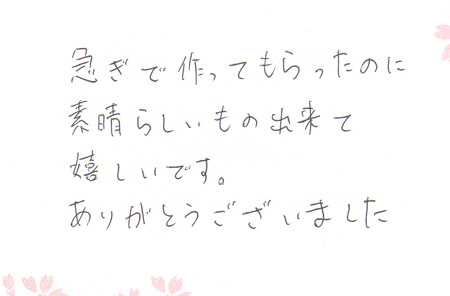 急ぎで作ってもらったのに
素晴らしいもの出来て
嬉しいです。
ありがとうございました